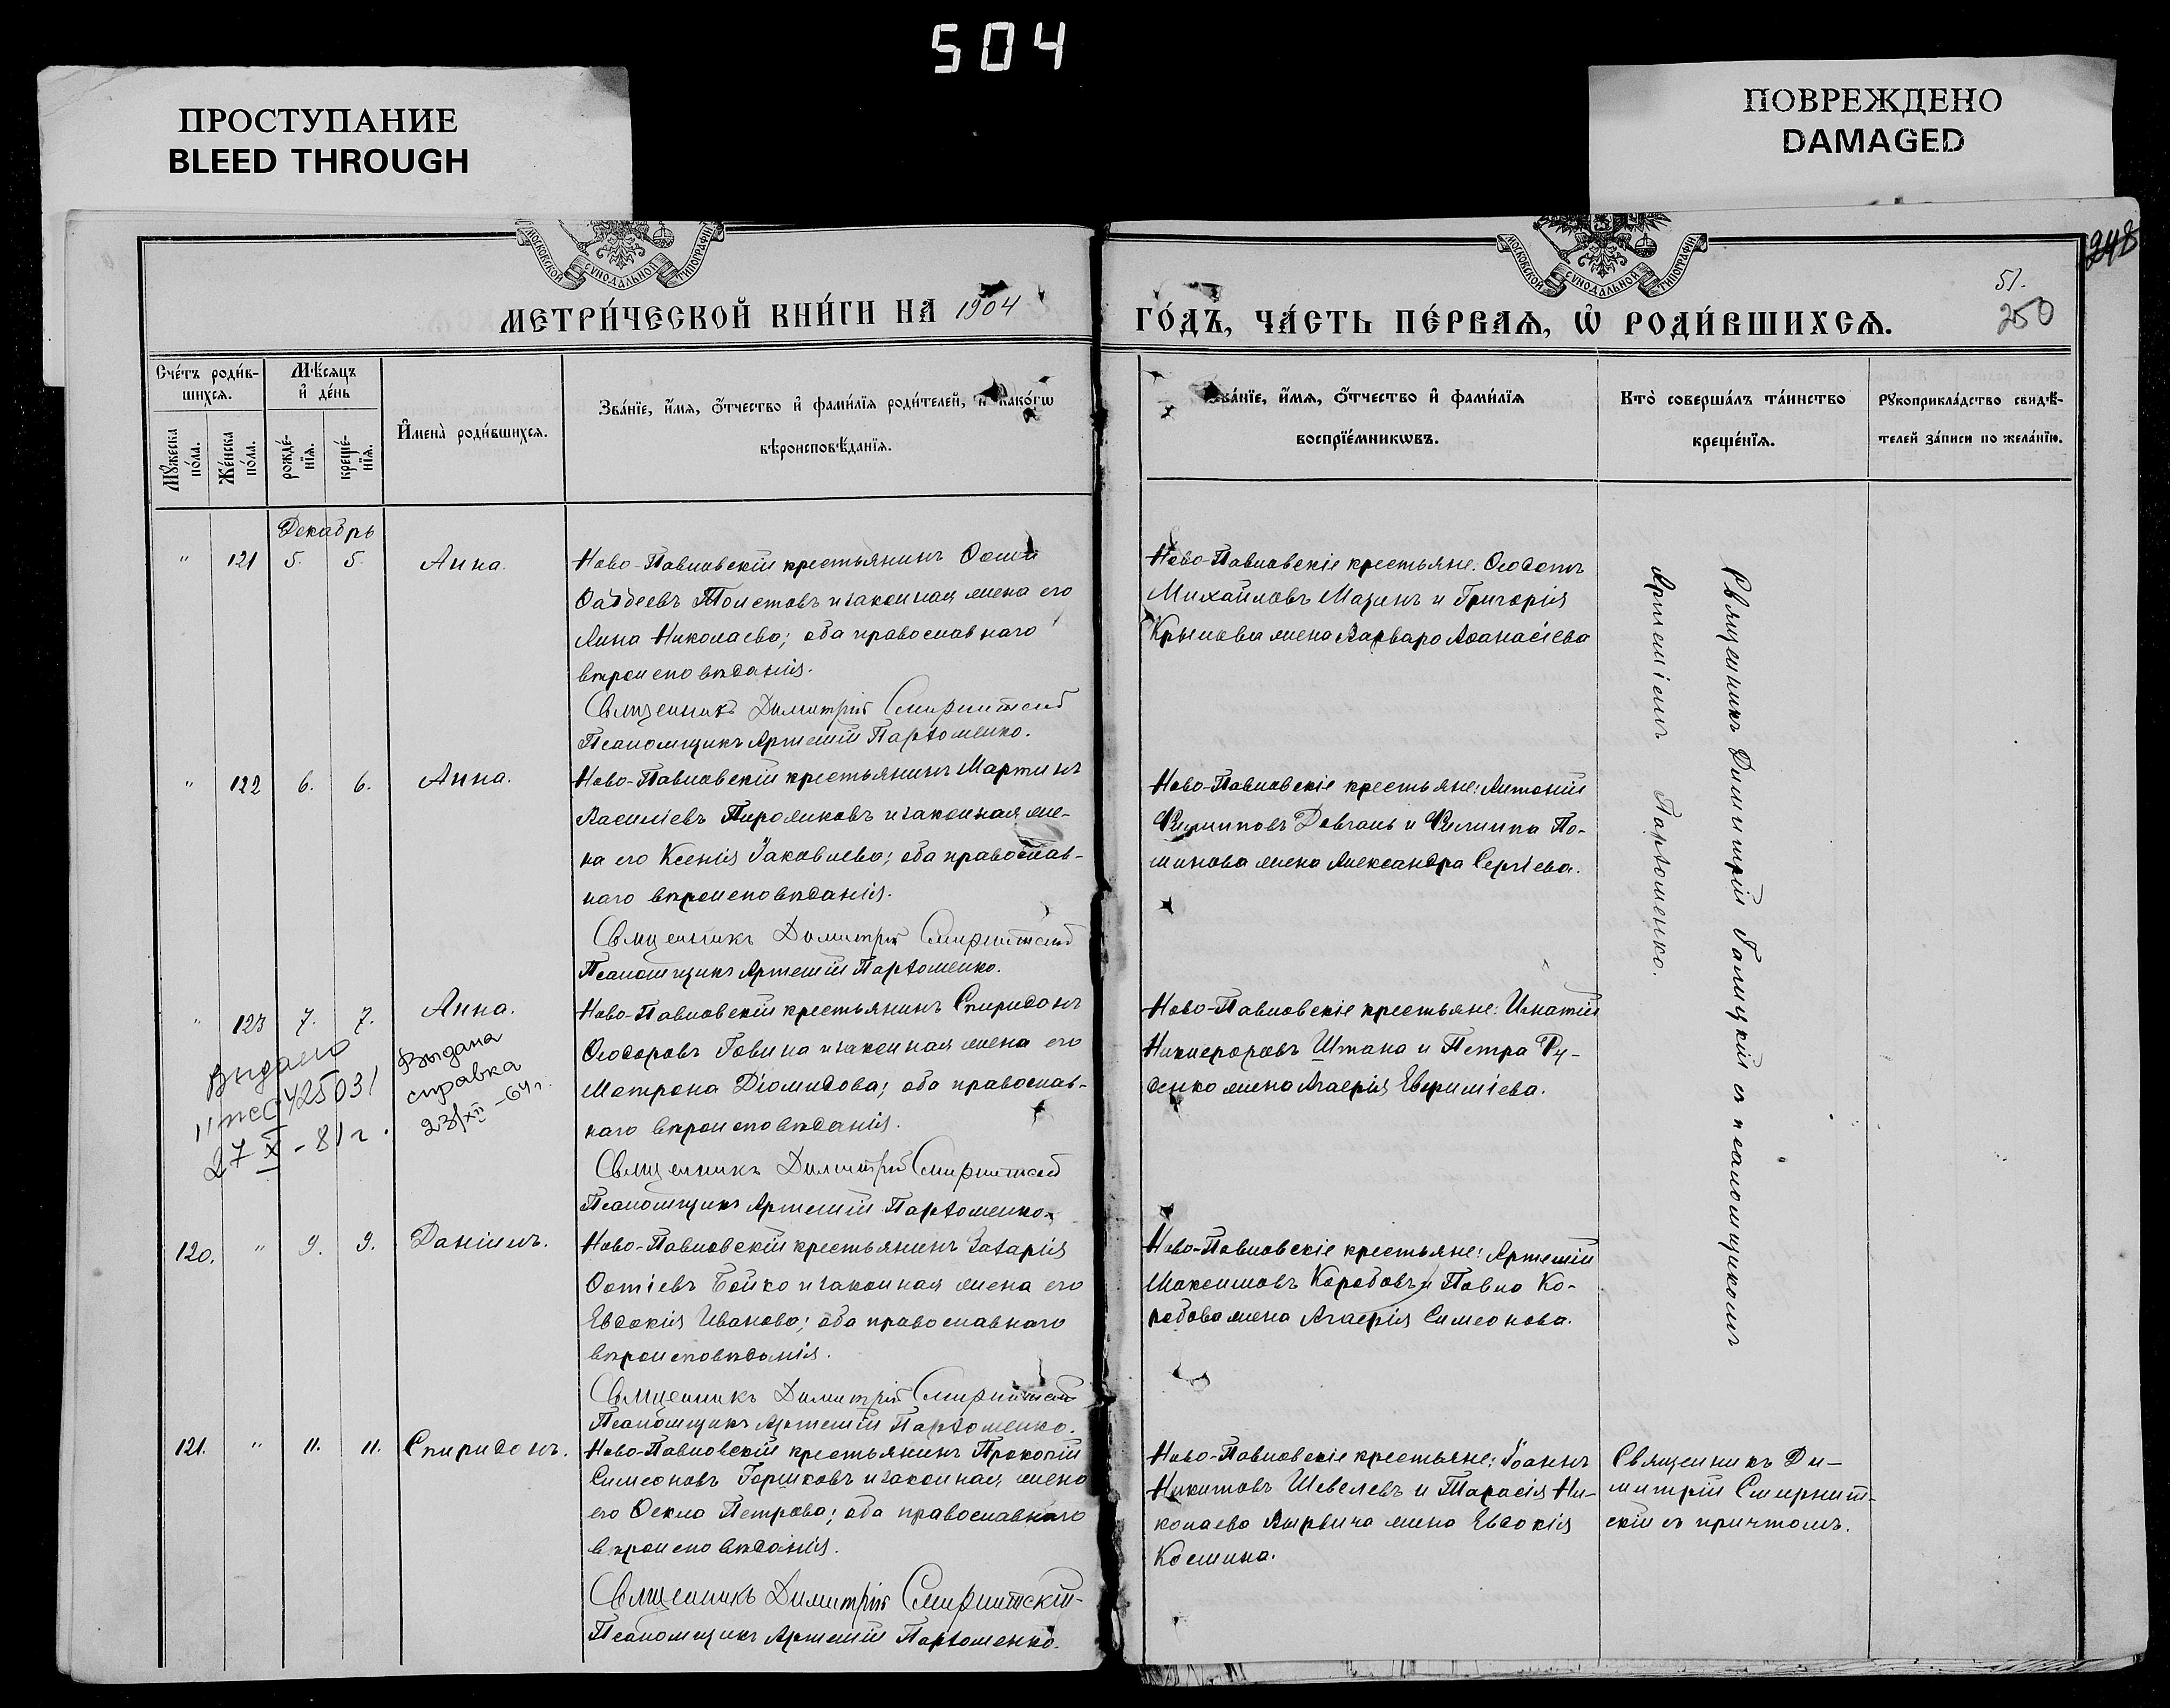 504
ПРОСТУПАНИЕ
BLEED THROUGH
ПОВРЕЖДЕНО
DAMAGED
МОСКОВСКОЙ СѴНОДАЛЬНОЙ ТИПОГРАФІИ
МОСКОВСКОЙ СѴНОДАЛЬНОЙ ТИПОГРАФІИ
248
51.
250
МЕТРИ́ЧЕСКОЙ КНИ́ГИ НА 1904
ГО́ДЪ, ЧА́СТЬ ПЕ́РВАЯ, Ѡ҆ РОДИ́ВШИХСЯ.
Сче́тъ роди́в-
шихся.
Мѣ́сяцъ
и҆ де́нь
Мꙋ́жеска
по́ла.
Же́нска
по́ла.
рожде́-
нїя.
креще́-
нїя.
И҆мена̀ роди́вшихся.
Зва́нїе, и҆́мя, ѻ҆́тчество и҆ фами́лїя роди́телей, и҆ како́гѡ
вѣроисповѣ́данїя.
Зва́нїе, и҆́мя, ѻ҆́тчество и҆ фами́лїя
воспрїе́мникѡвъ.
Кто̀ соверша́лъ та́инство
креще́нїя.
Рꙋкоприкла́дство свидѣ́-
телей за́писи по жела́нїю.
Декабрь
" 121 5. 5. Анна.
Ново-Павловскій крестьянинъ Ѳома
Ѳаддеевъ Толстовъ и законная жена его
Анна Николаева; оба православнаго
вѣроисповѣданія.
Священникъ Димитрій Смирнитскій
Псаломщикъ Артемій Пархоменко.
Ново-Павловскіе крестьяне: Ѳеодотъ
Михайловъ Мазинъ и Григорія
Крылова жена Варвара Аѳанасіева
Священникъ Димитрій Галицкій съ псаломщикомъ
Артеміемъ Пархоменко.
" 122 6. 6. Анна.
Ново-Павловскій крестьянинъ Мартинъ
Василіевъ Пирожковъ и законная же-
на его Ксенія Іаковлева; оба православ-
наго вѣроисповѣданія.
Священникъ Димитрій Смирнитскій
Псаломщикъ Артемій Пархоменко.
Ново-Павловскіе крестьяне: Антоній
Филипповъ Довгань и Филиппа По-
жена Александра Сергіева.
" 123 7. 7. Анна.
Ново-Павловскій крестьянинъ Спиридонъ
Ѳеодоровъ Говина и законная жена его
Матрона Діомидова; оба православ-
наго вѣроисповѣданія.
Священникъ Димитрій Смирнитскій
Псаломщикъ Артемій Пархоменко.
Выдано
425031
27 X - 81 г.
Выдана
справка
23/XII - 64 г.
Ново-Павловскіе крестьяне: Игнатій
Никифоровъ Штана и Петра Ру-
денко жена Агаѳія Евфиміева.
120. " 9. 9. Даніилъ.
Ново-Павловскій крестьянинъ Захарія
Фотіевъ Бойко и законная жена его
Евдокія Иванова; оба православнаго
вѣроисповѣданія.
Священникъ Димитрій Смирнитскій
Псаломщикъ Артемій Пархоменко.
Ново-Павловскіе крестьяне: Артемій
Максимовъ Коробовъ и Павла Ко-
робова жена Агаѳія Симеонова.
121. " 11. 11. Спиридонъ.
Ново-Павловскій крестьянинъ Прокопій
Симеоновъ Горшковъ и законная жена
его Ѳекла Петрова; оба православнаго
вѣроисповѣданія.
Священникъ Димитрій Смирнитскій
Псаломщикъ Артемій Пархоменко.
Ново-Павловскіе крестьяне: Іоаннъ
Никитовъ Шевелевъ и Тарасія Ни-
колаева жена Евдокія
Косьмина.
Священникъ Ди-
митрій Смирнит-
скій съ причтомъ.